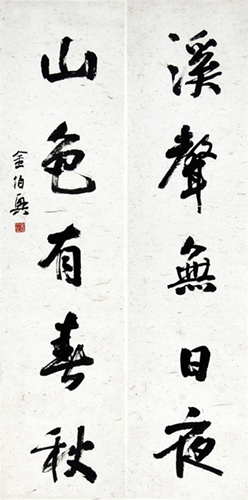 溪聲無日夜
山色有春秋
金伯興